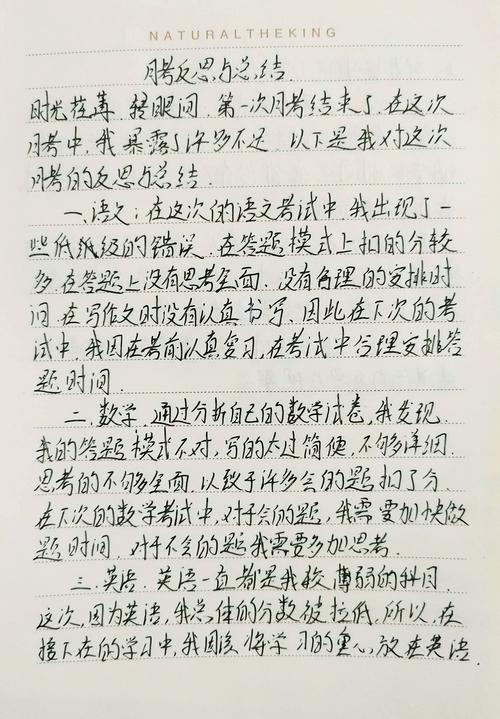 NATURALTHEKING
月考反思与总结
时光荏苒,转眼间,第一次月考结束了,在这次
月考中,我暴露了许多不足,以下是我对这次
月考的反思与总结.
一.语文:在这次的语文考试中,我出现了一
些低纸级的错误,在答题模式上扣的分较
多,在答题上没有思考全面,没有合理的安排时
间,在写作文时没有认真书写、因此在下次的考
试中,我因在考前认真复习,在考试中合理安排答
题时间.
二.数学,通过分析自己的数学试卷,我发现
我的答题模式不对,写的太过简便,不够详细.
思考的不够全面,以致于许多会的题扣了分.
在下次的数学考试中,对于会的题,我需要加快做
题时间,对于不会的题我需要多加思考.
三.英语.英语一直都是我较薄弱的科目.
这次,因为英语,我总体的分数被拉低,所以,在
接下在的学习中,我因该将学习的重心,放在英语